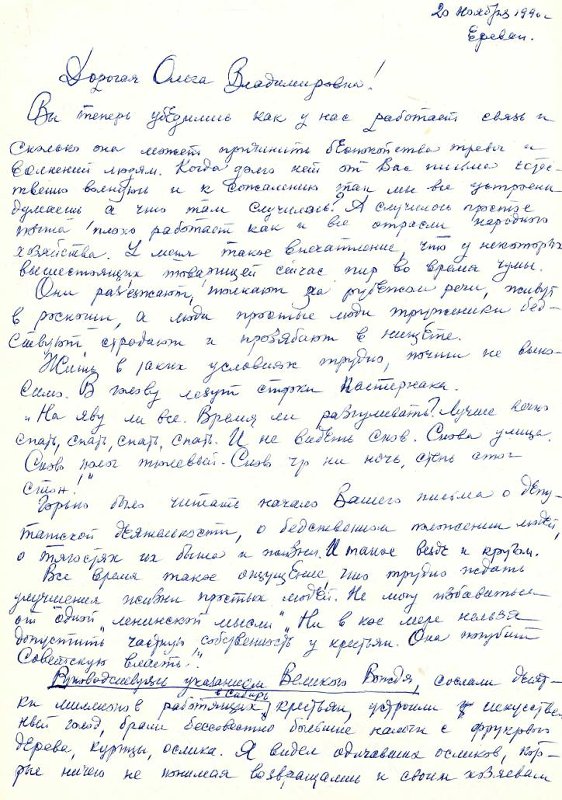 20 ноября 1990 г.
Ереван.
Дорогая Ольга Владимировна!
Вы теперь убедились как у нас работает связь и
сколько она может причинить беспокойства тревог и
волнений людям. Когда долго нет от Вас письма естес-
твенно волнуюсь и к сожалению так мы все устроены
думаешь а что там случилось? А случилось простое
почта плохо работает как и все отрасли народного
хозяйства. У меня такое впечатление, что у некоторых
вышестоящих товарищей сейчас пир во время чумы.
Они разъезжают, толкают за рубежом речи, живут
в роскоши, а люди простые люди труженики бед-
ствуют страдают и прозябают в нищете.
Жить в таких условиях трудно, почти не выно-
симо. В голову лезут строки Пастернака.
"На яву ли все. Время ли разгуливать? Лучше вечно
спать, спать, спать, спать. И не видеть снов. Снова улица.
Снов полог тюлевый. Снов что ни ночь, степь стог
стон!"
Горько было читать начало Вашего письма о депу-
татской деятельности, о бедственном положении людей,
о тягостях их быта и жизни. И такое везде и кругом.
Все время такое ощущение, что трудно ждать
улучшения жизни простых людей. Не могу избавиться
от одной "ленинской мысли" "Ни в кое мере нельзя
допустить частную собственность у крестьян. Она погубит
Советскую власть!"
Руководствуясь указанием Великого Вождя, сослали десят-
ки миллионов работящих в Сибирь крестьян, устроили искусствен
ный голод, брали бессовестно большие налоги с фруктового
дерева, курицы, ослика. Я видел одичавших осликов, кото-
рые ничего не понимая возвращались к своим хозяевам